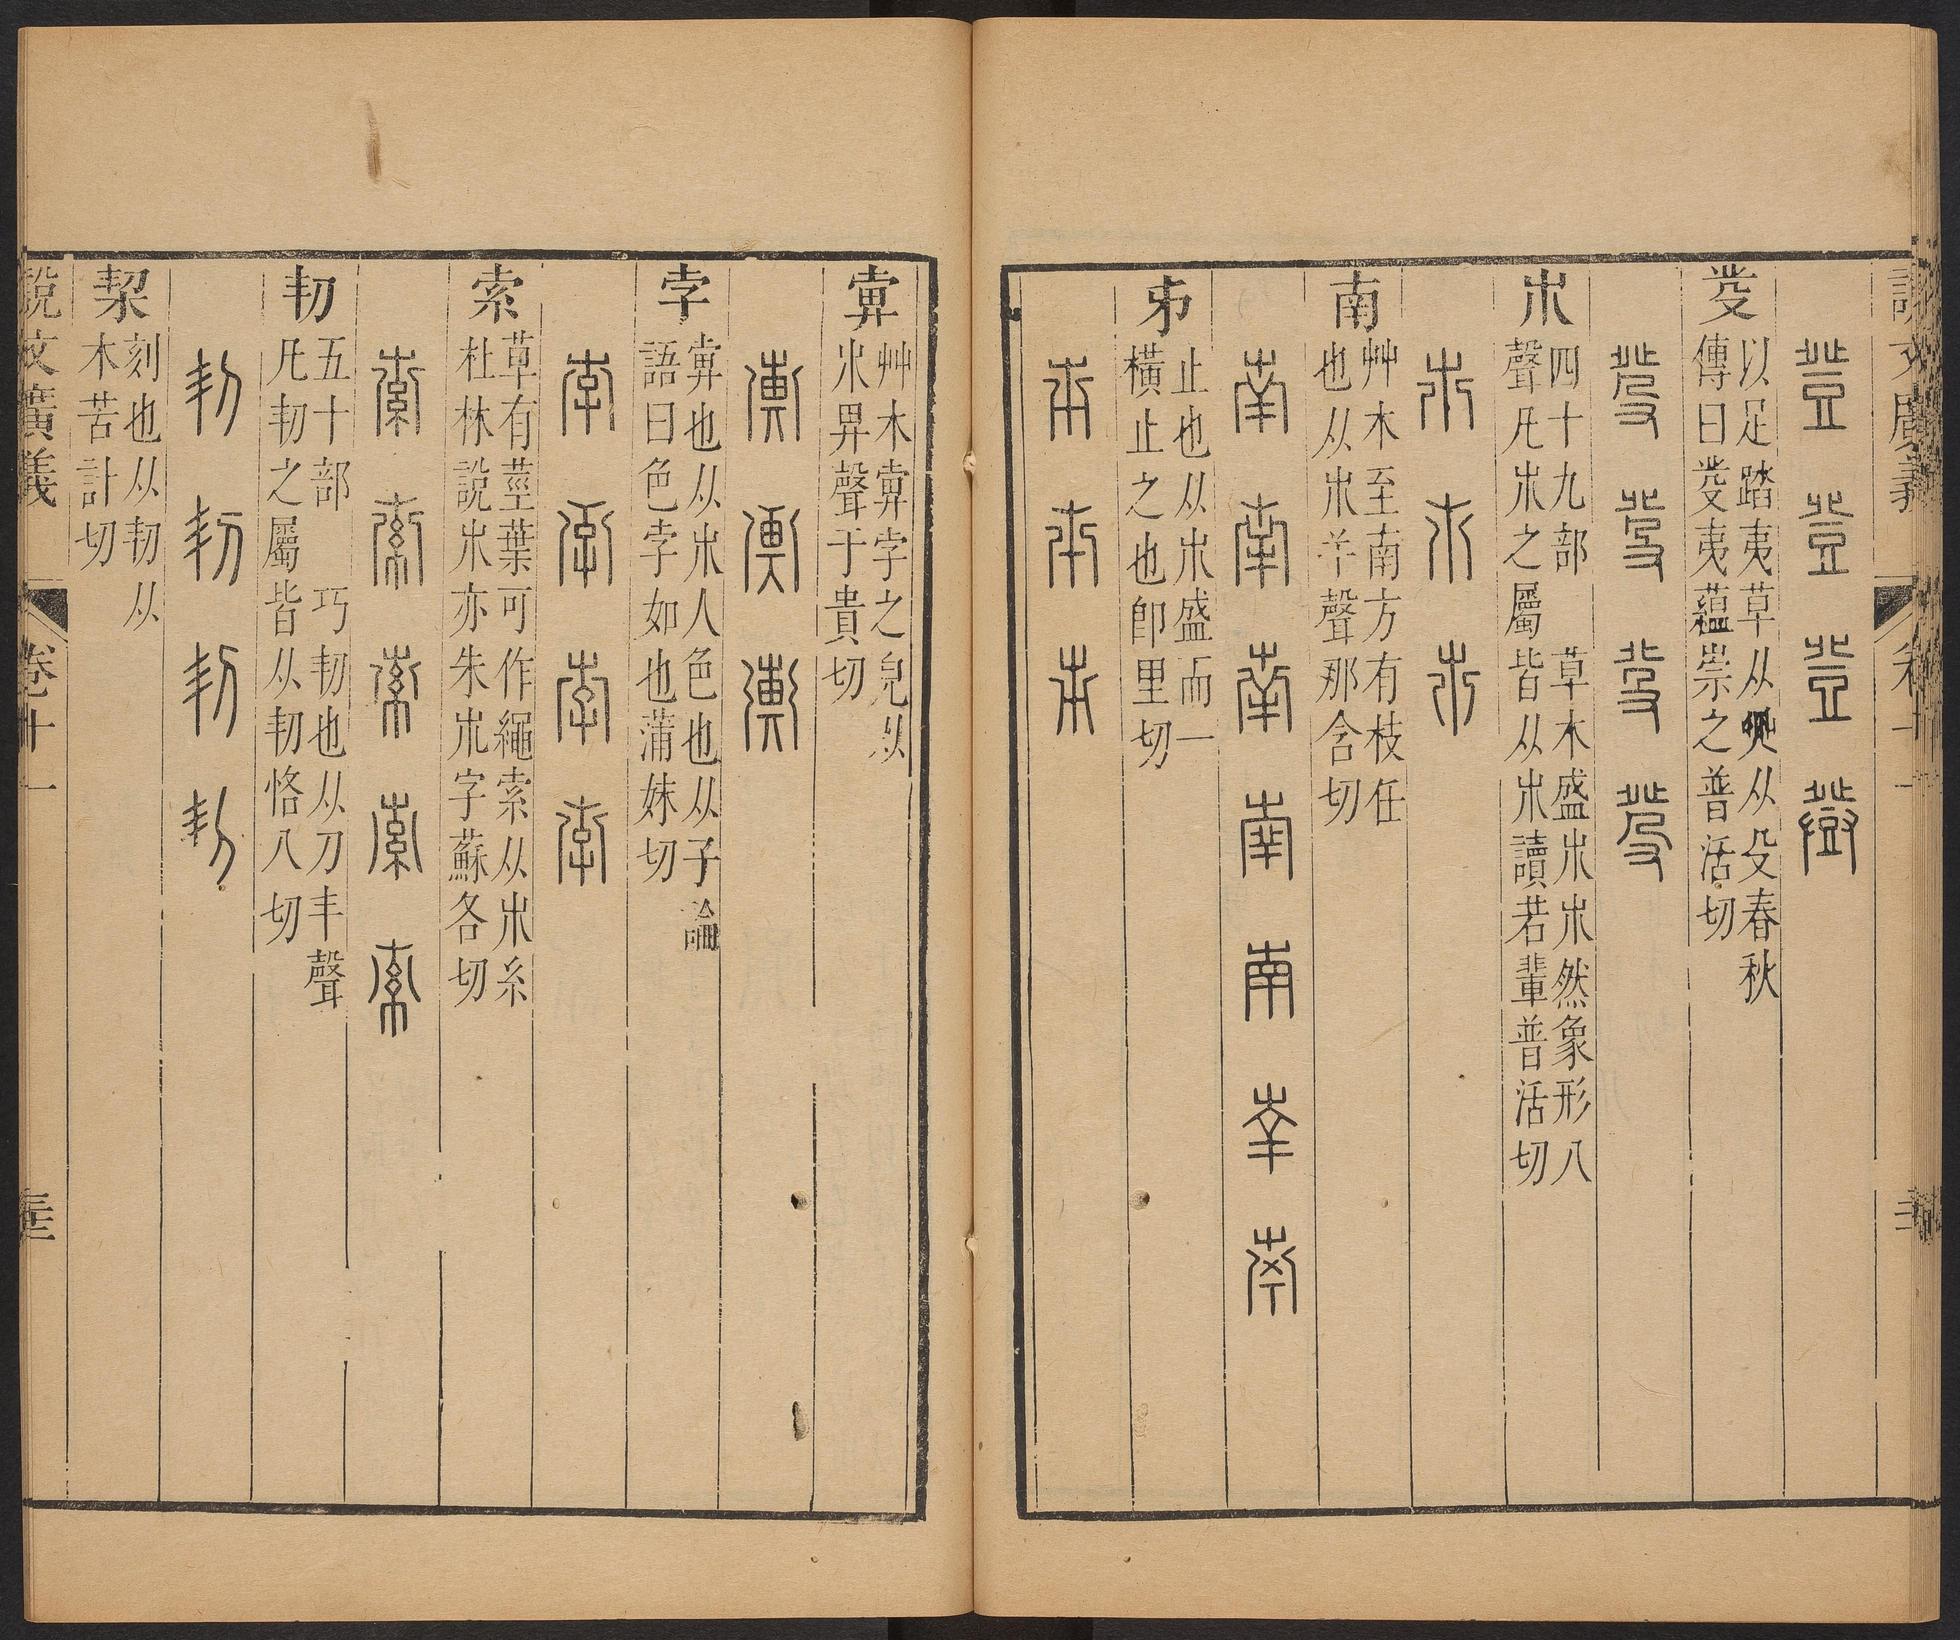 說文廣義 卷十一
登 登 登 𤼷
癹
以足踏夷草从癶从殳春秋
傳曰癹夷蘊崇之普活切
癹 癹 癹 癹
𣎵
四十九部 草木盛𣎵𣎵然象形八
聲凡𣎵之屬皆从𣎵讀若輩普活切
𣎵 𣎵 𣎵
南
艸木至南方有枝任
也从𣎵𢆉聲那含切
南 南 南 南 南 南 南
𠂔
止也从𣎵盛而一
橫止之也卽里切
𠂔 𠂔 𠂔
艸木孛之皃从
𣎵畀聲于貴切
孛
也从𣎵人色也从子論
語曰色孛如也蒲妹切
孛 孛 孛 孛
索
草有莖葉可作繩索从𣎵糸
杜林說𣎵亦朱𣎵字蘇各切
索 索 索 索 索
㓞
五十部 巧㓞也从刀丯聲
凡㓞之屬皆从㓞恪八切
㓞 㓞 㓞 㓞
栔
刻也从㓞从
木苦計切
說文廣義 卷十一 三十三